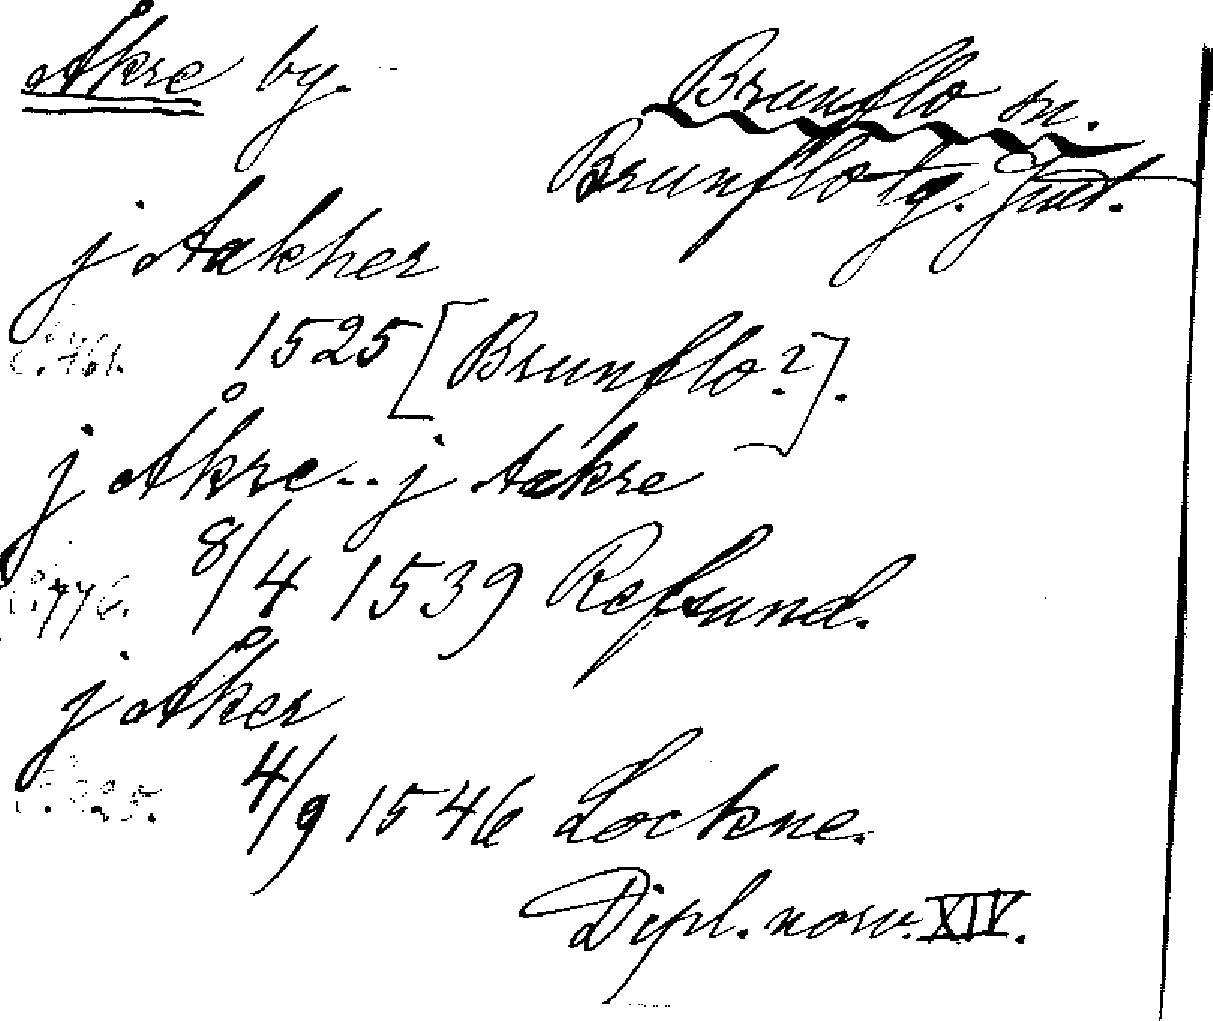 Åkre by.
Brunflo sn.
Brunflo tg. Jmt.
j Aakher
1525 [Brunflo?].
j Åkre.. j Aakre
8/4 1539 Refsund.
j Åker
4/9 1546 Lockne.
Dipl. norv. XIV.